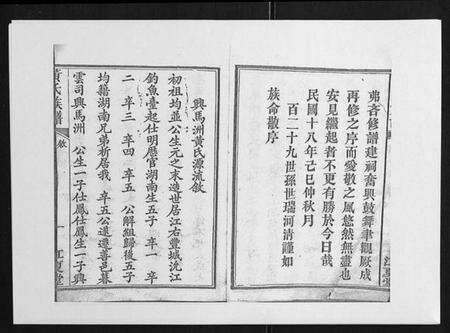 弗吝修譜建祠奮興鼓舞聿觀厥成
再修之序而愛敬之風悠然無盡也
安見繼起者不更有勝於今日哉
民國十八年己巳仲秋月
百二十九世孫世瑞河清謹如
族命敬序
興馬洲黃氏源流敘
初祖均並公生元之末造世居江右豐城沇江
釣魚臺起仕明歷官湖南生五子 卒一 卒
二 卒三 卒四 卒五 公解組歸後五子
均籍湖南兄弟析居我 卒五公遺遷善邑暮
雲司興馬洲 公生一子仕鳳仕鳳公生一子興
黃氏族譜
敘
一
江夏堂